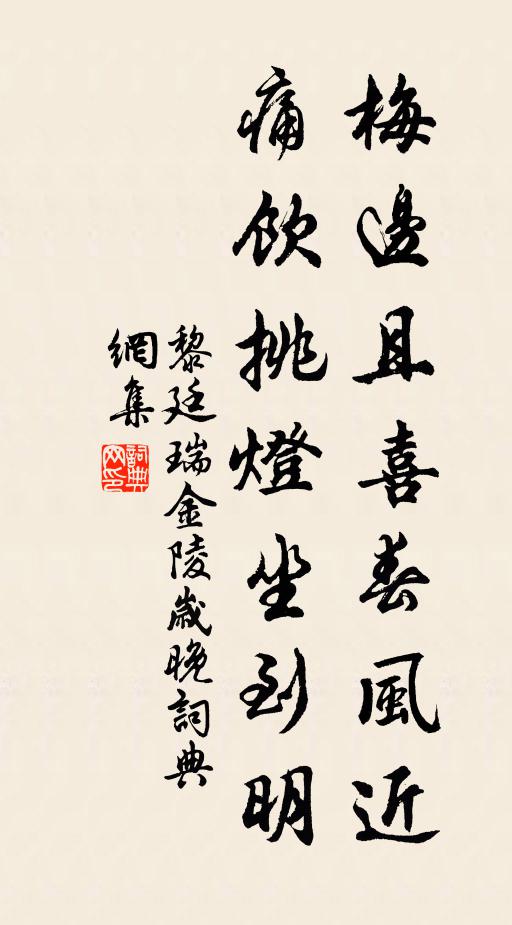 梅邊且喜春風近
痛飲挑燈坐到明
黎廷瑞金陵歲晚詞典
網集
詞典
网印